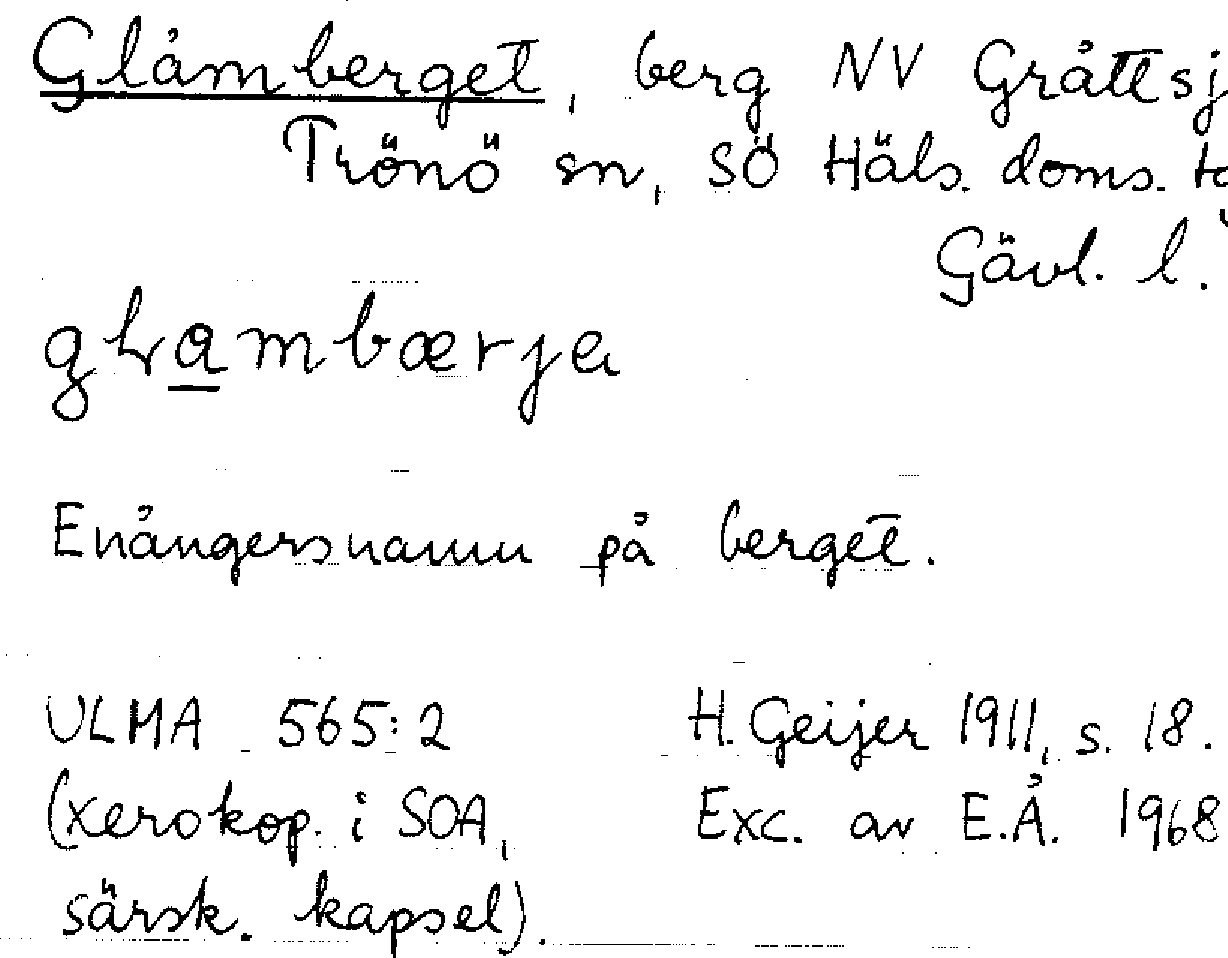 Glåmberget, berg NV Gråttsj
Trönö sn, SÖ Häls. doms.
Gävl. l.
Enångersnamn på berget.
ULMA 565:2
H. Geijer 1911, s. 18.
(xerokop. i SOA,
Exc. av E.Å. 1968
särsk. kapsel).